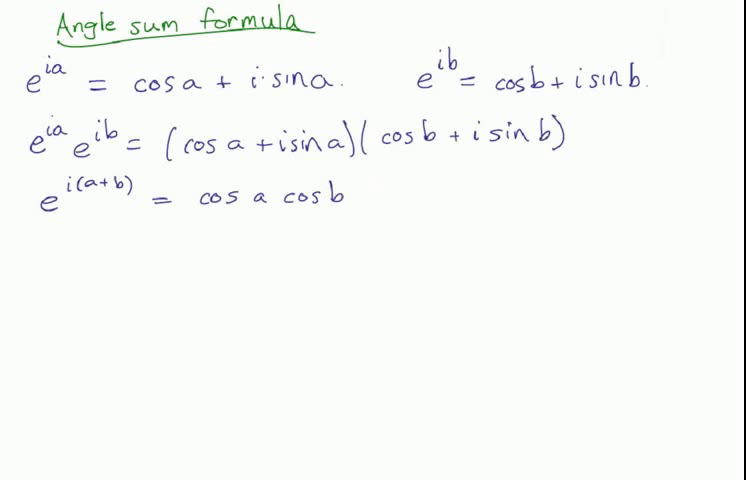 Angle sum formula
e^{ia} = cos a + i·sin a. e^{ib} = cos b + i sin b.
e^{ia} e^{ib} = (cos a + i sin a)(cos b + i sin b)
e^{i(a+b)} = cos a cos b